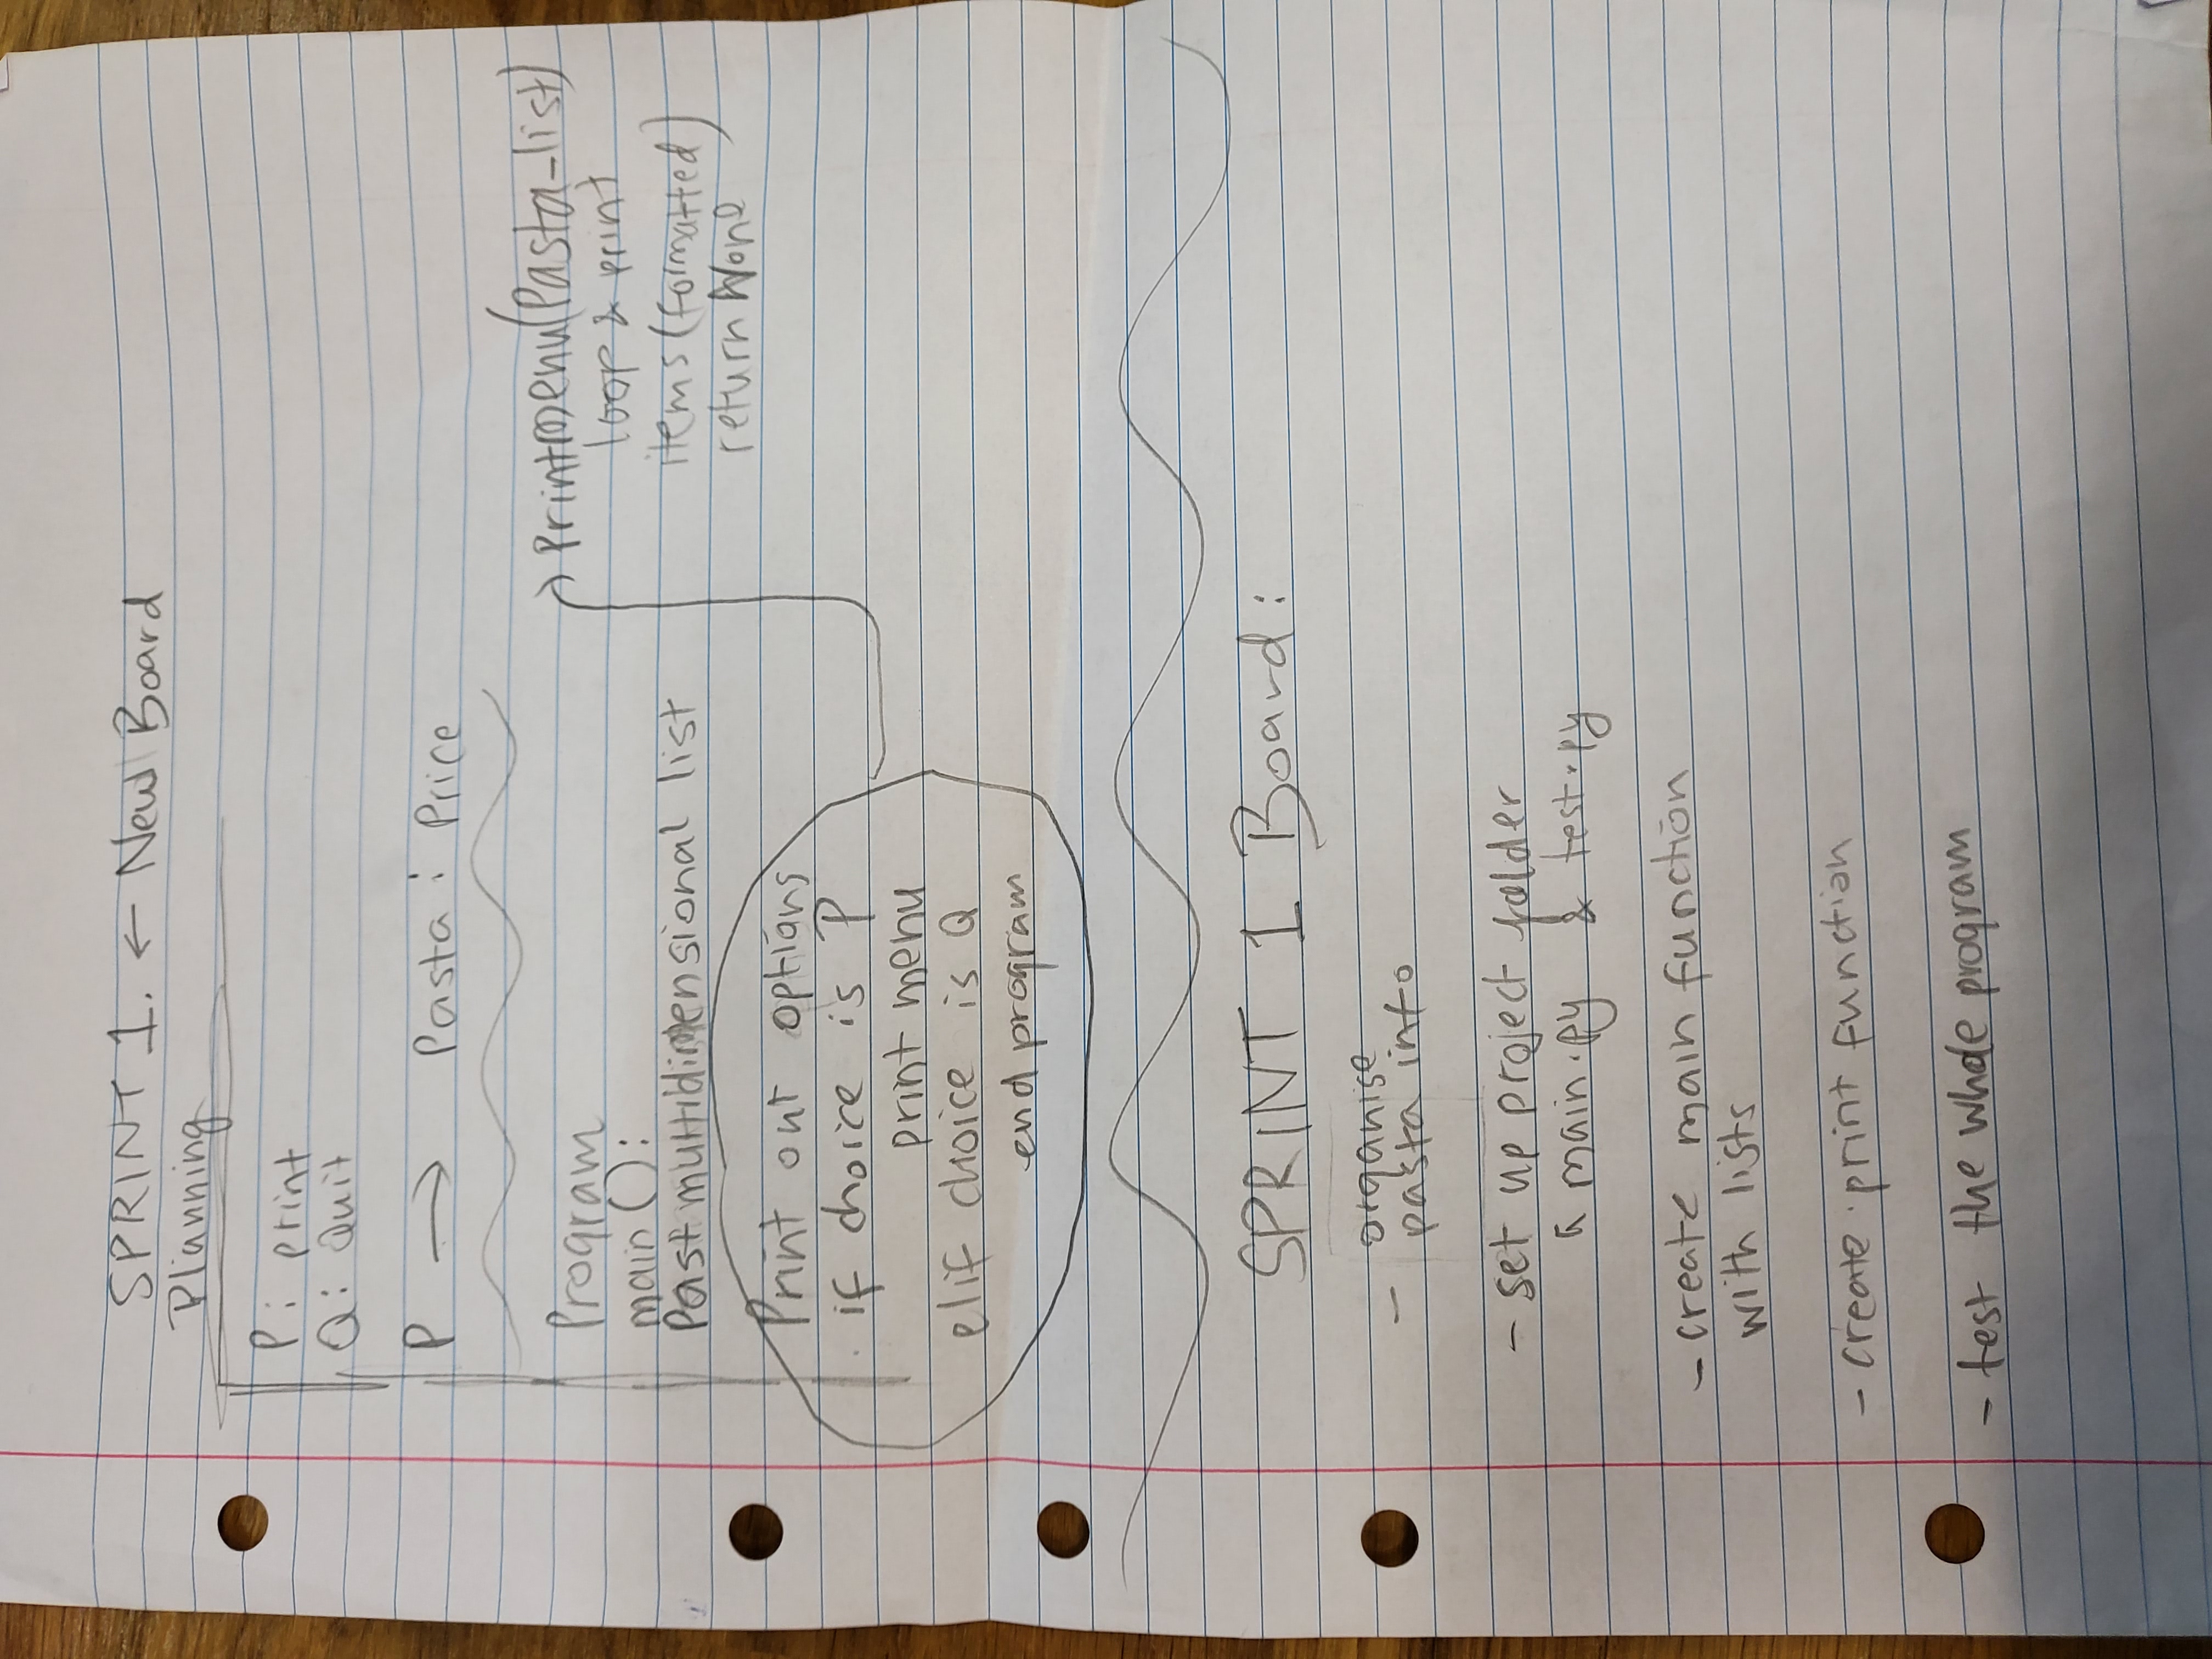 SPRINT 1. ← New Board
Planning
P: print
Q: Quit
P → Pasta : Price
Program
main():
Past multidimensional list
Print out options
if choice is P
print menu
elif choice is Q
end program
Printmenu(Pasta_list)
loop & print
items (formatted)
return None
SPRINT 1 Board:
- organise
pasta info
- set up project folder
a main.py & test.py
- create main function
with lists
- create print function
- test the whole program